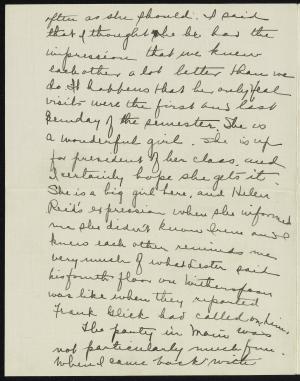 often as she should. I said
that I thought she had the
impression that we knew
each other a lot better than we
do. It happens that her only real
visits were the first and last
Sunday of the semester. She is
a wonderful girl. She is up
for president of her class, and
I certainly hope she gets it.
She is a big girl here, and Helen
Reid's expression when she informed
me she didn't know Irene and I
knew each other reminds me
very much of what Lester said
his fourth floor on Witherspoon
was like when they reported
Frank Glick had called on him.
The party in Main was
not particularly much fun.
When I came back with